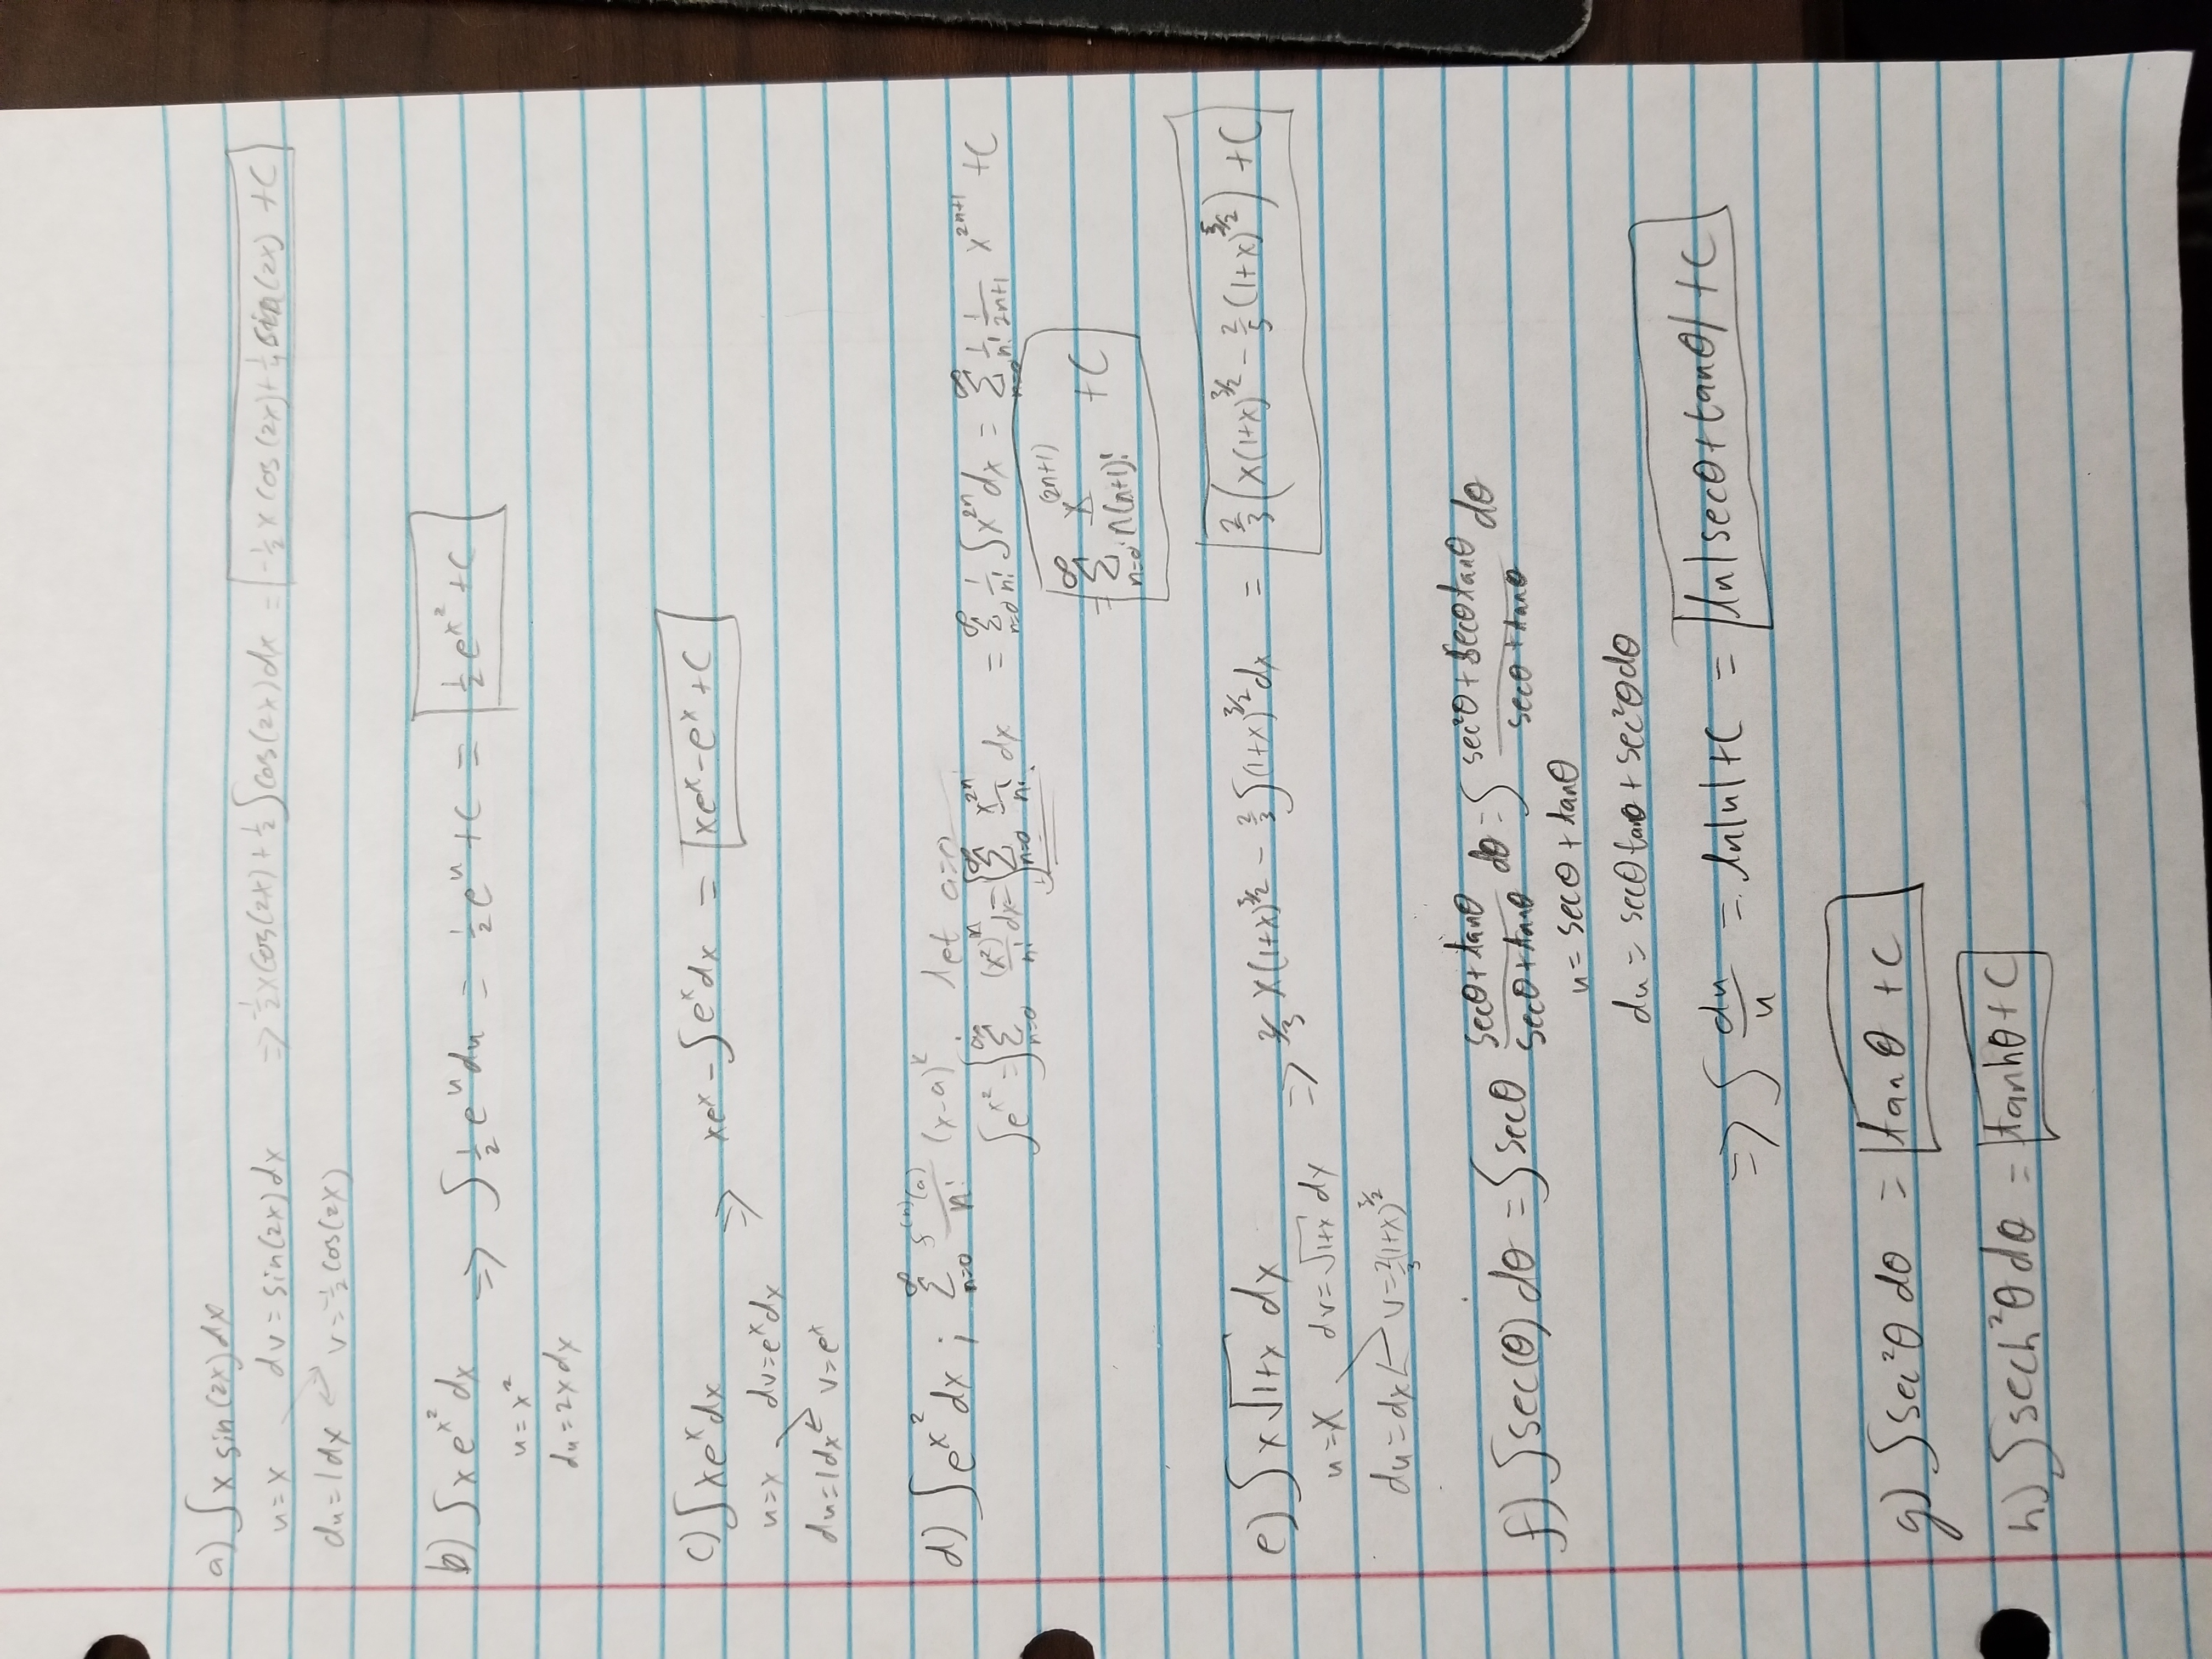 a) ∫x sin(2x)dx
u=x dv=sin(2x)dx ⇒ -½xcos(2x)+½∫cos(2x)dx = -½x cos(2x)+¼sin(2x) +C
du=1dx v=-½cos(2x)
b) ∫xe^{x²}dx ⇒ ∫½e^u du = ½e^u+C = ½e^{x²}+C
u=x²
du=2xdx
c) ∫xe^x dx ⇒ xe^x-∫e^x dx = xe^x-e^x+C
u=x dv=e^x dx
du=1dx v=e^x
d) ∫e^{x²}dx ; ∑_{n=0}^{∞} f^{(n)}(a)/n! (x-a)^k. let a=0
∫e^{x²}=∫∑_{n=0}^{∞} (x²)^n/n! dx=∫∑_{n=0}^{∞} x^{2n}/n! dx = ∑_{n=0}^{∞} 1/n! ∫x^{2n}dx = ∑_{n=0}^{∞} 1/n! 1/2n+1 x^{2n+1} +C
=∑_{n=0}^{∞} x^{(2n+1)}/n(n+1)! +C
e) ∫x√1+x dx ⇒ ⅔x(1+x)^{3/2} - ⅔∫(1+x)^{3/2}dx = ⅔(x(1+x)^{3/2}-⅖(1+x)^{5/2}) +C
u=x dv=√1+x dx
du=dx v=⅔(1+x)^{3/2}
f) ∫sec(θ)dθ =∫secθ secθ+tanθ/secθ+tanθ dθ=∫ sec²θ+secθtanθ/secθ+tanθ dθ
u=secθ+tanθ
du = secθtanθ+sec²θdθ
⇒∫ du/u = ln|u|+C = ln|secθ+tanθ|+C
g) ∫sec²θdθ = tanθ +C
h) ∫sech²θdθ = tanhθ+C